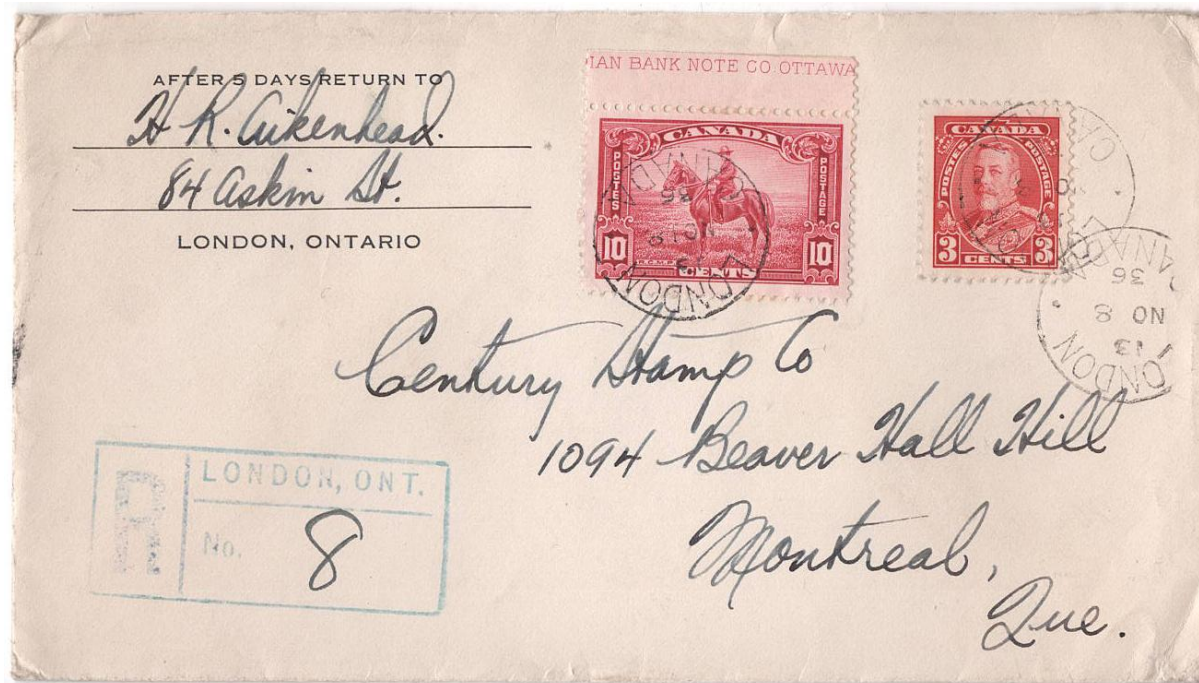 AFTER 5 DAYS RETURN TO
H. R. Aikenhead.
84 Askin St.
LONDON, ONTARIO
IAN BANK NOTE CO OTTAWA
CANADA
POSTES
POSTAGE
10
10
R.C.M.P.
CENTS
CANADA
POSTES
POSTAGE
3
3
CENTS
LONDON
CANADA
NO 8
36
LONDON
CANADA
LONDON
13
NO 8
36
CANADA
Century Stamp Co
1094 Beaver Hall Hill
Montreal,
Que.
R
LONDON, ONT.
No. 8